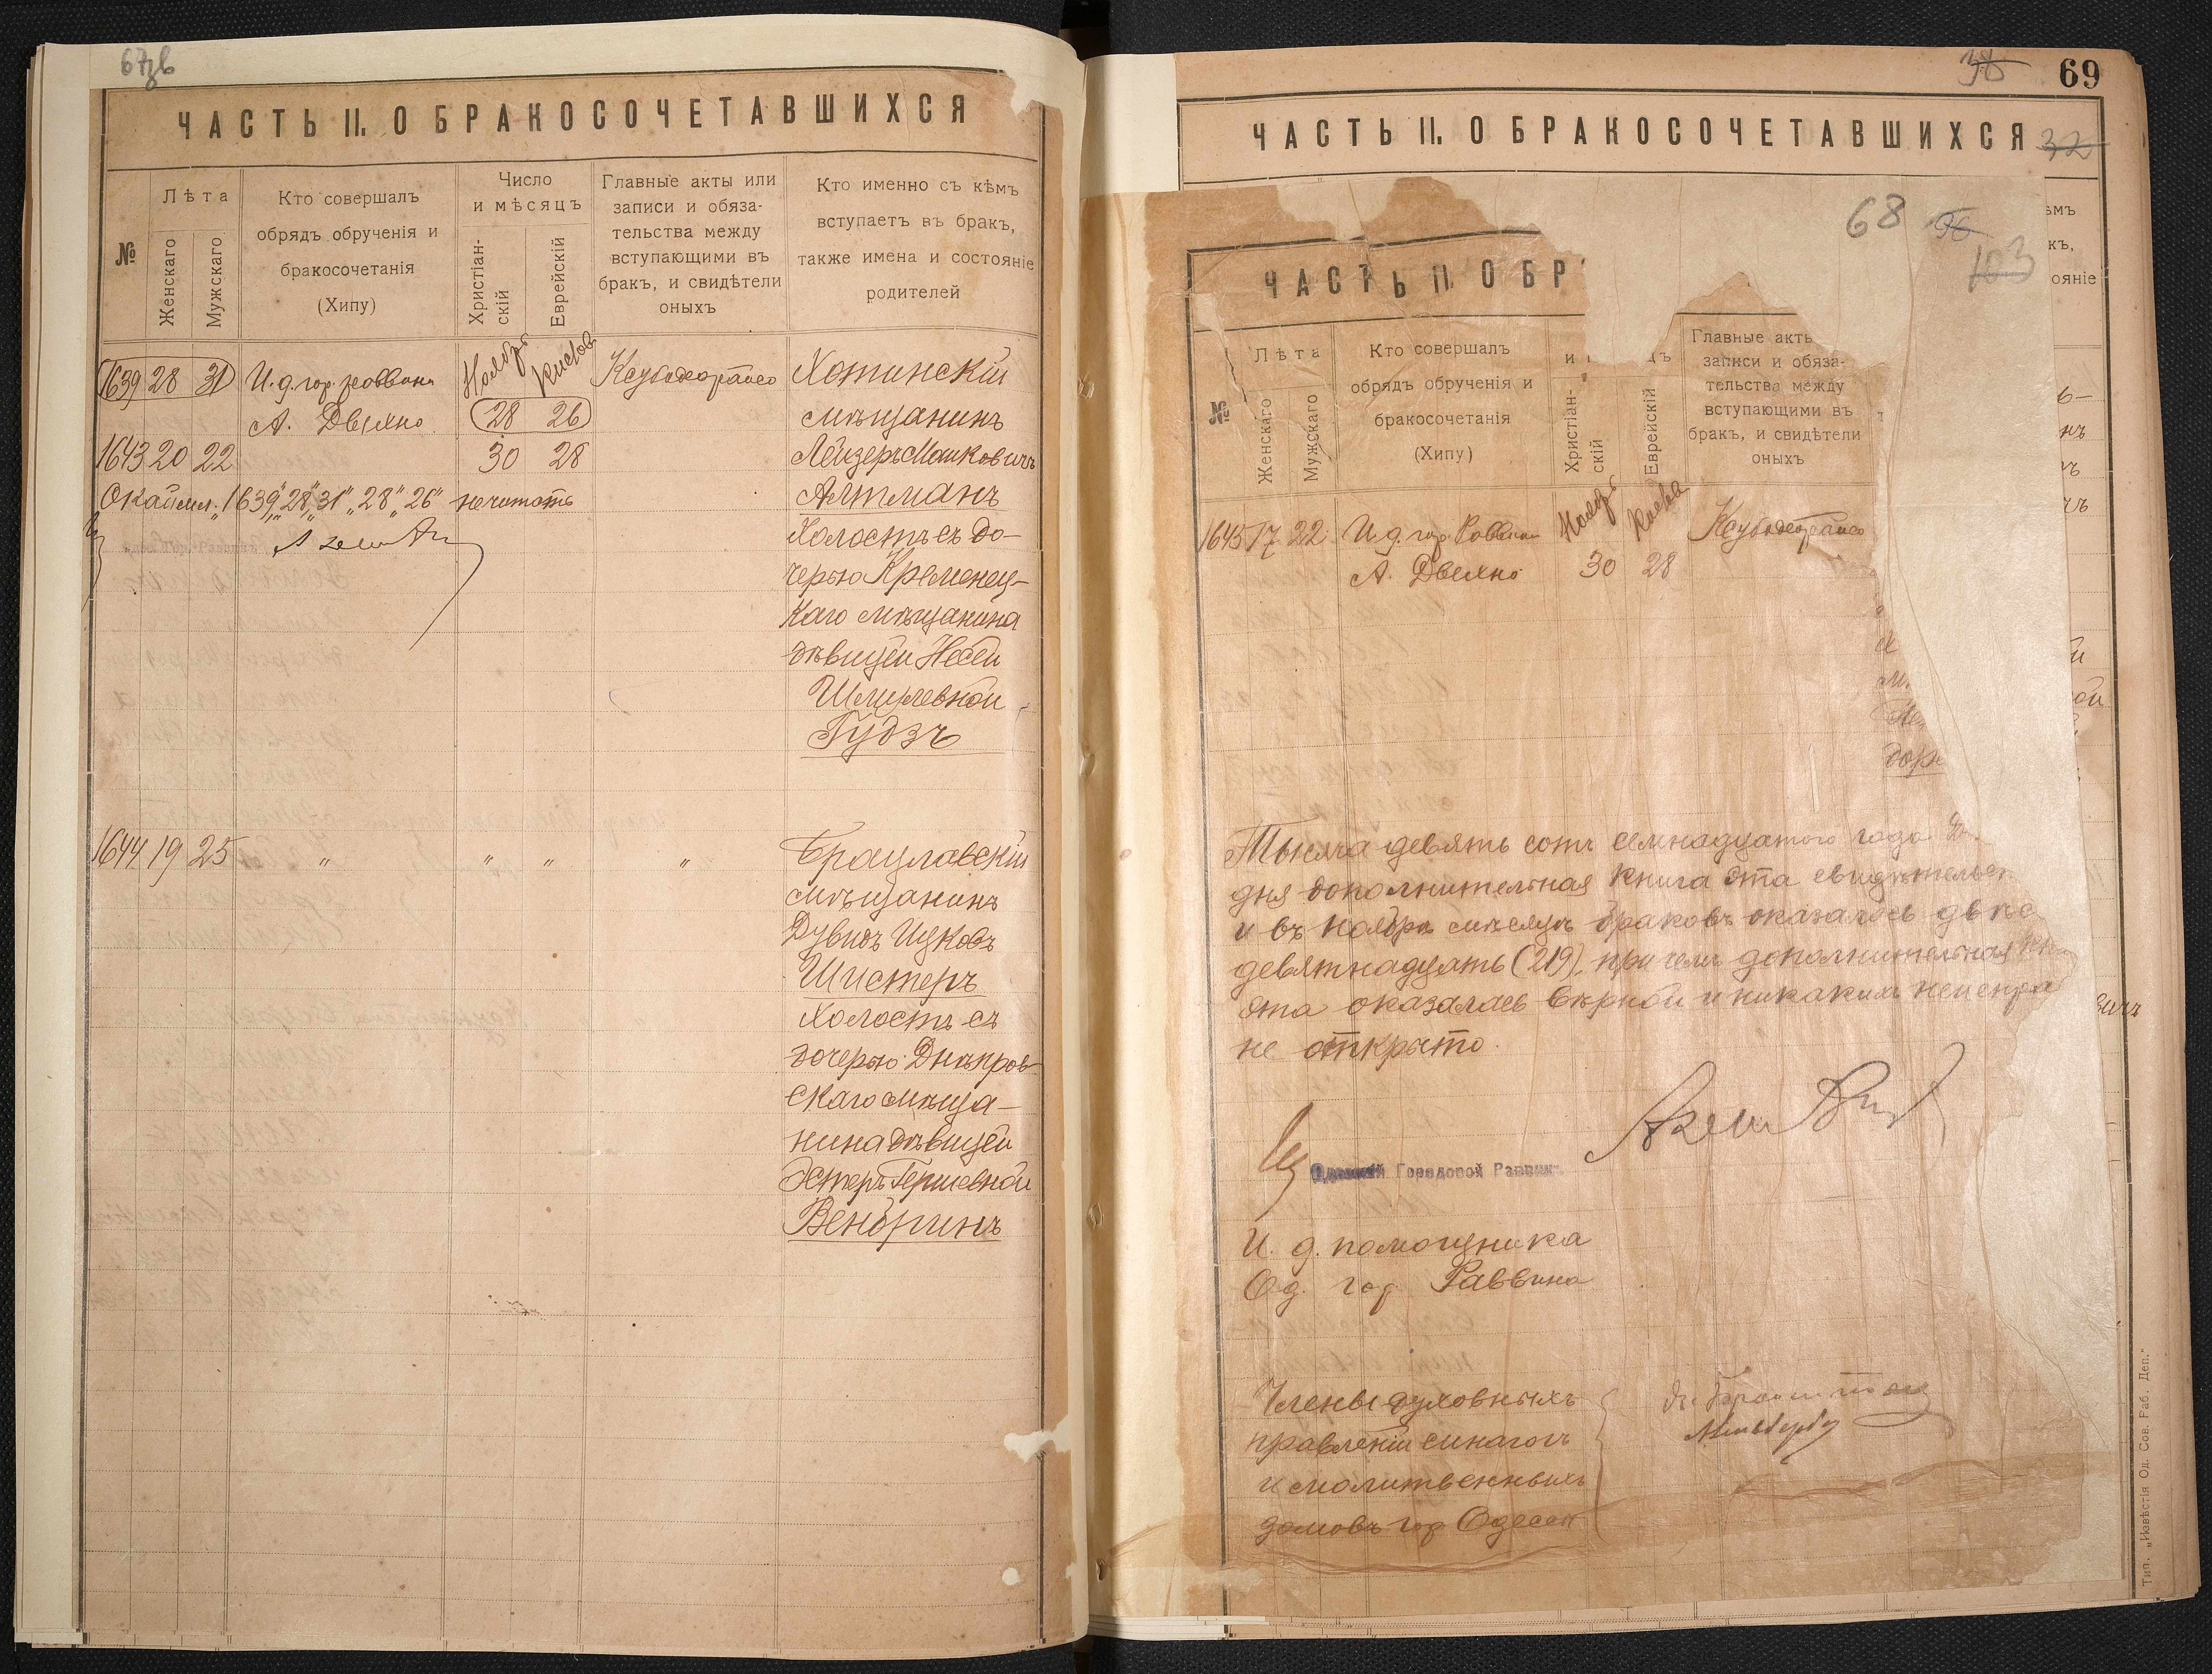 67зв
ЧАСТЬ II. О БРАКОСОЧЕТАВШИХСЯ
№
Лѣта
Женскаго
Мужскаго
Кто совершалъ
обрядъ обрученія и
бракосочетанія
(Хипу)
Число
и мѣсяцъ
Христіан-
скій
Еврейскій
Главные акты или
записи и обяза-
тельства между
вступающими въ
бракъ, и свидѣтели
оныхъ
Кто именно съ кѣмъ
вступаетъ въ бракъ,
также имена и состояніе
родителей
1639 28 31 И. д. гор. раввина Ноябрь Кислев Хотинскій
А. Двелно 28 26 мѣщанинъ
1643 20 22 30 28 Лейзеръ Машковичъ
Окаймл. "1639", "28", "31", "28", "26" не читать Алтманъ
Холостъ съ до-
черью Кременец-
каго мѣщанина
дѣвицей Несей
Шмулевной
Гудзъ
1644 19 25 " " " " Брацлавскій
мѣщанинъ
Дувидъ Ицковъ
Шистеръ
Холостъ съ
дочерью Днѣпров-
скаго мѣща-
нина дѣвицей
Эстеръ Гершевной
Вендринъ
38 69
ЧАСТЬ II. О БРАКОСОЧЕТАВШИХСЯ 32
68 96
103
ѣмъ
къ,
ояніе
ЧАСТЬ II. О БР
№
Лѣта
Женскаго
Мужскаго
Кто совершалъ
обрядъ обрученія и
бракосочетанія
(Хипу)
и
ъ
Христіан-
скій
Еврейскій
Главные акты
записи и обяза-
тельства между
вступающими въ
бракъ, и свидѣтели
оныхъ
1645 17 22 И. д. гор. Раввина Ноябрь Кислева
А. Двелно 30 28
Тысяча девять сотъ семнадцатого года
дня дополнительная книга эта свидѣтельст
и въ ноябрѣ мѣсяцѣ браковъ оказалось двѣс
девятнадцать (219), при чемъ дополнительная кн
эта оказалась вѣрной и никакихъ неиспра
не открыто.
Одесскій Городовой Раввинъ
И. д. помощника
Од. гор. Раввина
Члены духовныхъ
правленій синагогъ
и молитвенныхъ
домовъ гор Одессы
Тип. „Извѣстія Од. Сов. Раб. Деп."